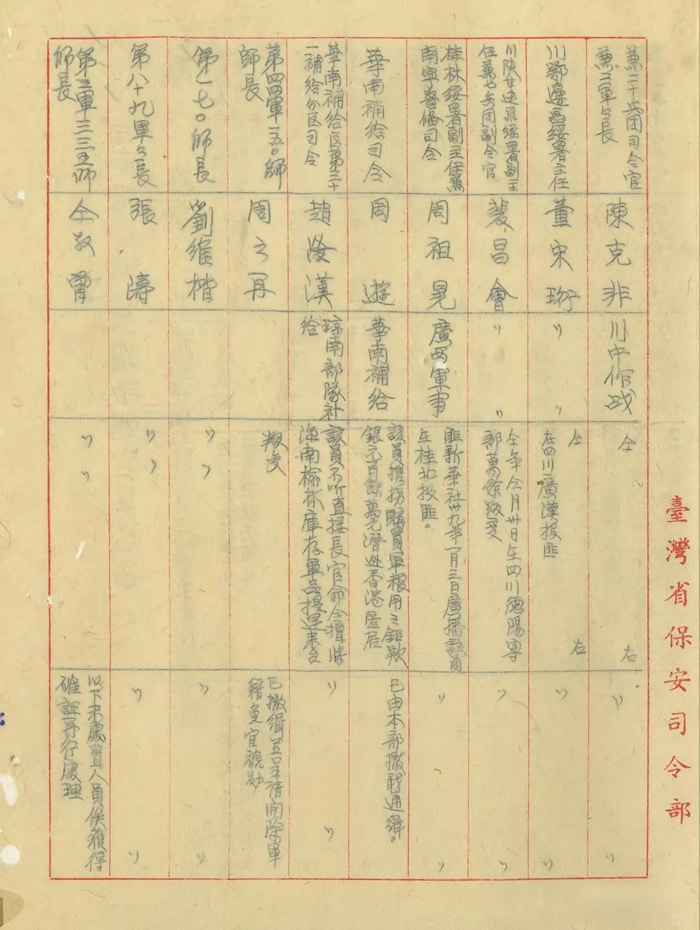 臺灣省保安司令部
兼二十兵团司令官
兼二軍々長
陳克非
川中作战
仝 右
〃 〃
川鄂邊區綏署主任
董宋珩
〃 〃
仝 右
在四川廣漢投匪
〃 〃
川陝甘边區綏署副主
任兼七兵团副司令官
裴昌會
〃 〃
仝年仝月卅日在四川德陽率
部萬餘叛变
〃 〃
桂林綏署副主任兼
南寧警備司令
周祖晃
廣西軍事
匪新華社卅九年一月三日廣播該員
在桂北投匪。
〃 〃
華南補給司令
周遊
華南補給
該員捲拐購買軍粮用之鉅款
銀元百餘萬元潛逃香港居住
已由本部撤职通緝。
華南補給区第二十
一補給分區司令
趙汝漢
瓊南部隊补
給
該員不听直接長官命令擅將
海南榆林庫存軍品提運來台
〃 〃
第四四軍一五〇師
師長
周之再
叛变
已撤緝並呈請開除軍
籍免官褫勋
第一七〇師長
劉維楷
〃 〃
〃 〃
第八十九軍々長
張濤
〃 〃
〃 〃
第三軍三三五師
師長
仝敦曾
〃 〃
以下未處置人員俟獲得
確証再行處理